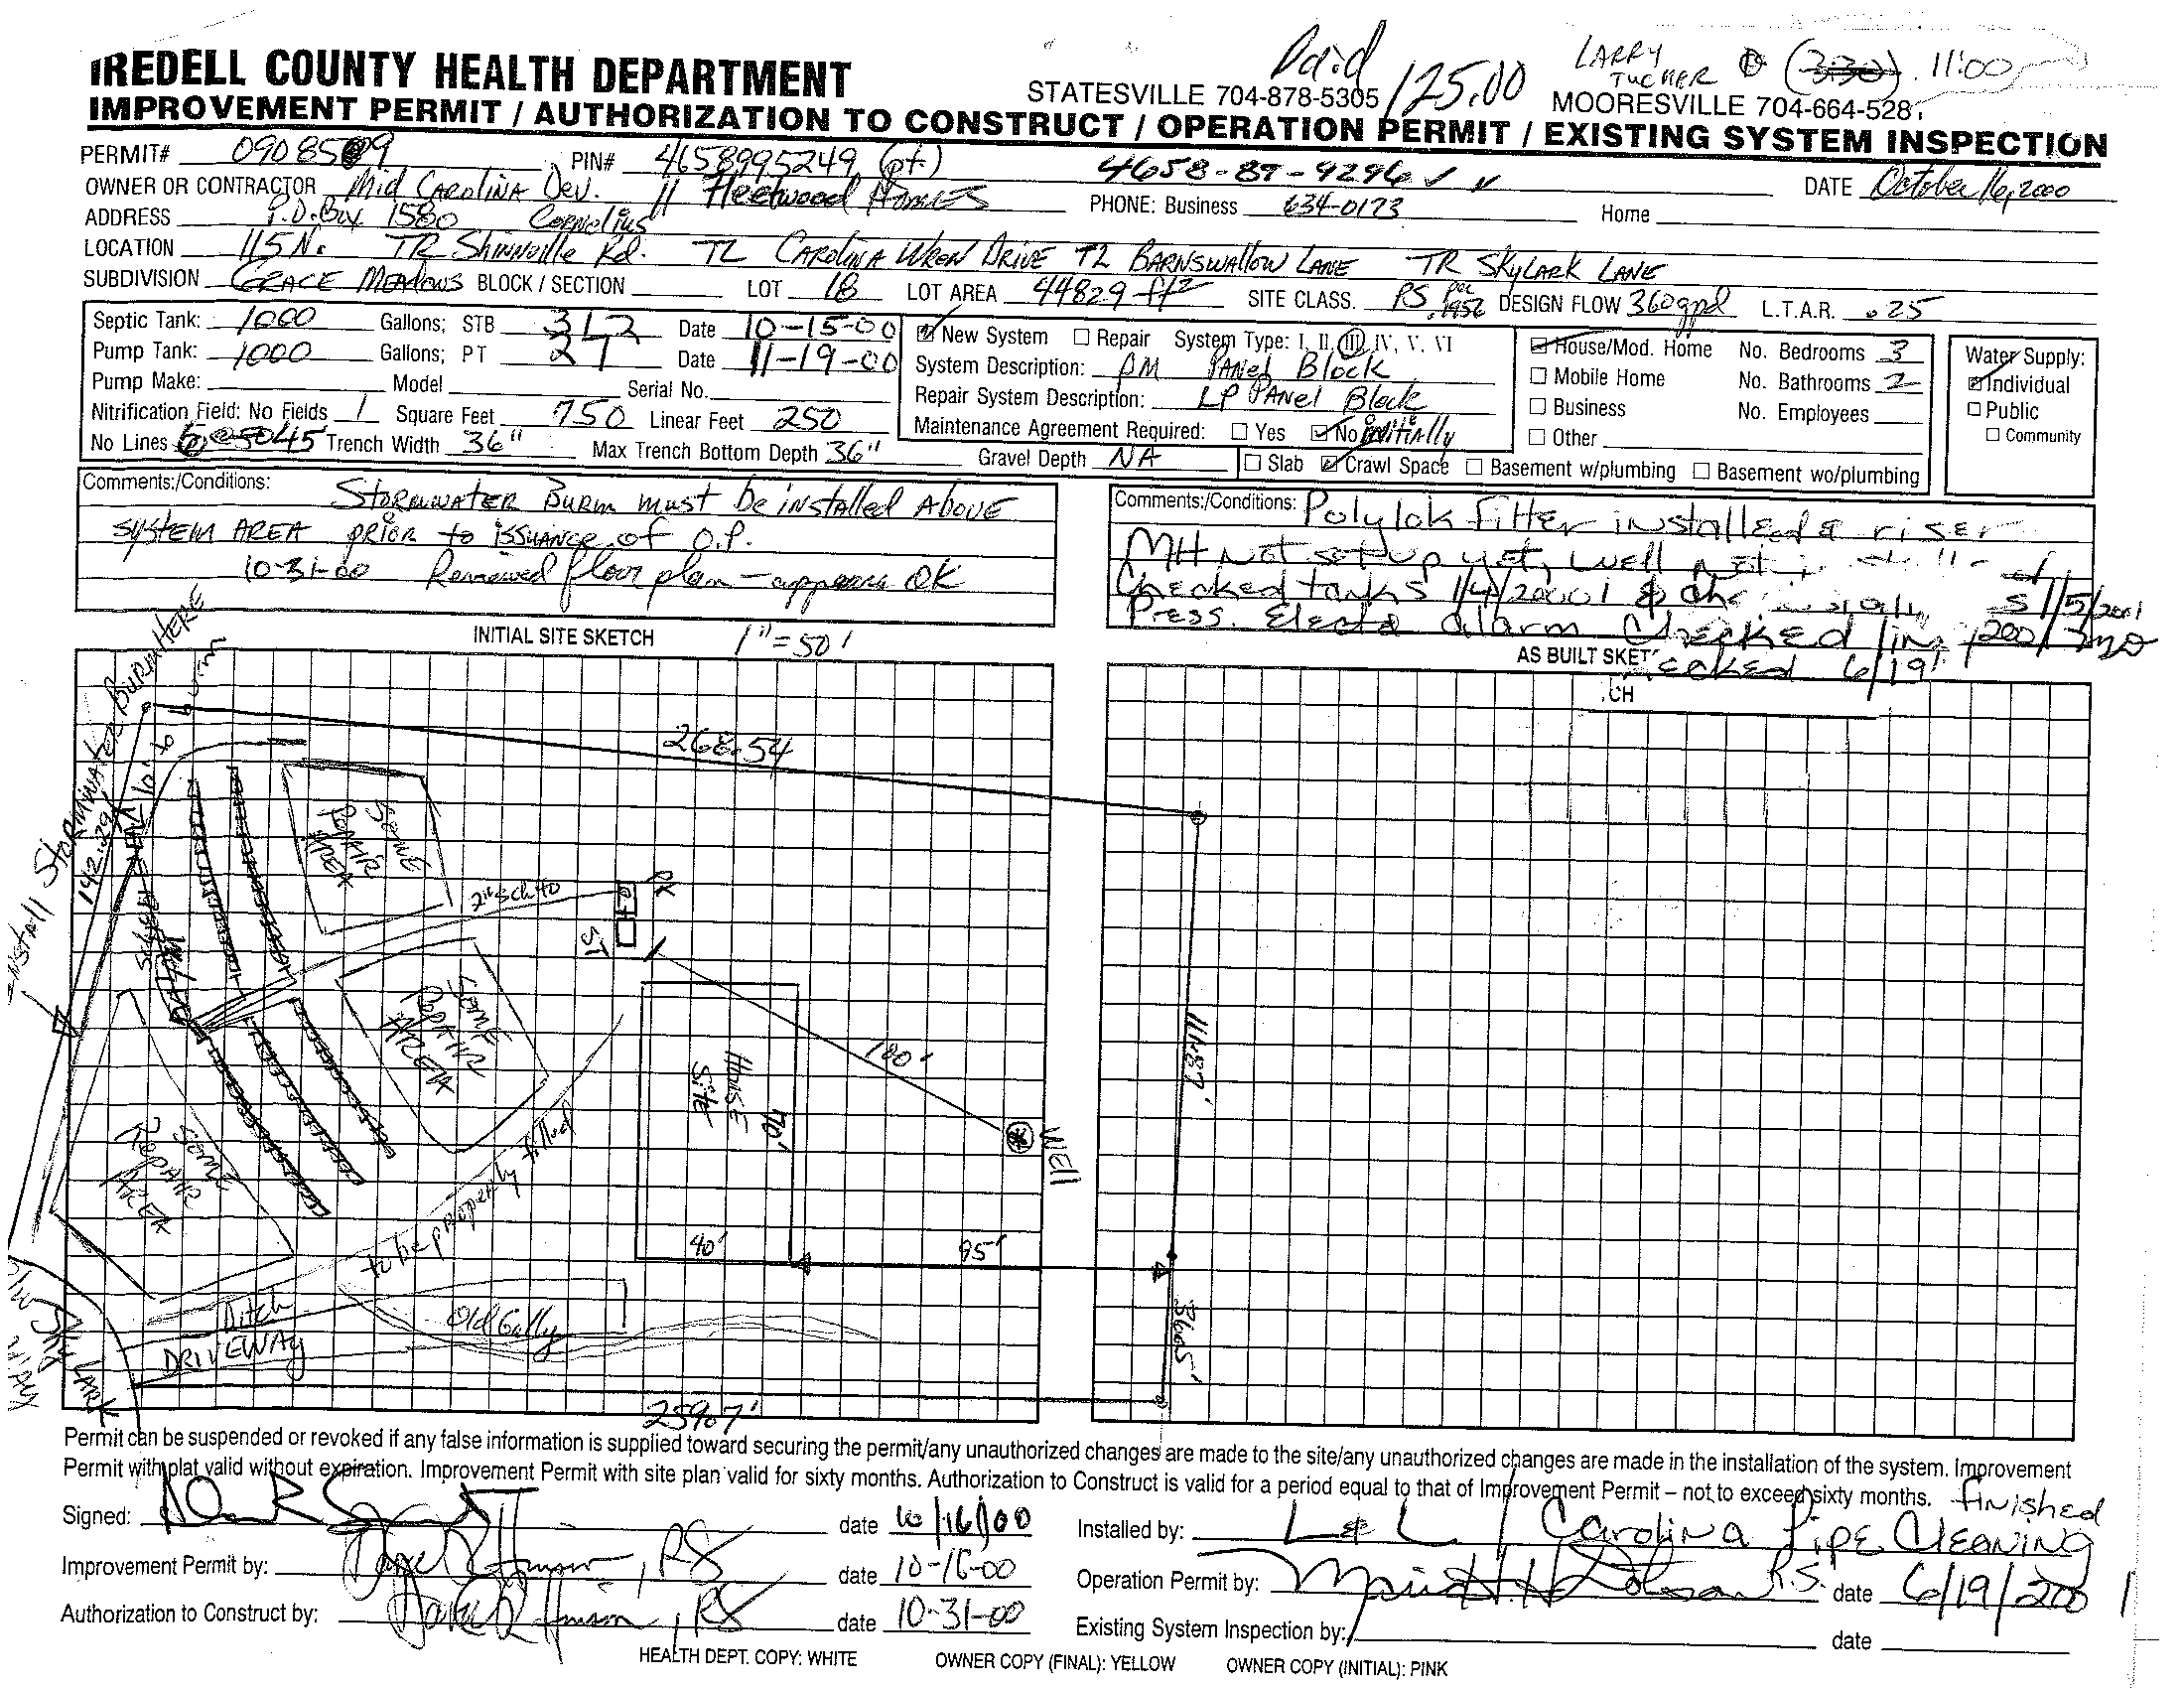 Paid 125.00 LARRY TUCKER (3:30) 11:00
IREDELL COUNTY HEALTH DEPARTMENT
STATESVILLE 704-878-5305 MOORESVILLE 704-664-528
IMPROVEMENT PERMIT / AUTHORIZATION TO CONSTRUCT / OPERATION PERMIT / EXISTING SYSTEM INSPECTION
PERMIT# PIN# 4658995249 (pt.) 4658-89-9296
OWNER OR CONTRACTOR Mid CAROLINA Dev. // Fleetwood Homes DATE October 16, 2000
ADDRESS P.O. Box 1580 Cornelius PHONE: Business 634-0173 Home
LOCATION 115 N. TR Shinnville Rd. TL CAROLINA WREN DRIVE TL BARNSWALLOW LANE TR SKYLARK LANE
SUBDIVISION GRACE MEADOWS BLOCK / SECTION LOT 18 LOT AREA 44829 ft² SITE CLASS. PS per .1956 DESIGN FLOW 360gpd L.T.A.R. .25
Septic Tank: 1000 Gallons; STB 312 Date 10-15-00
Pump Tank: 1000 Gallons; PT 27 Date 11-19-00
Pump Make: Model Serial No.
Nitrification Field: No Fields 1 Square Feet 750 Linear Feet 250
No Lines Trench Width 36" Max Trench Bottom Depth 36" Gravel Depth NA
New System Repair System Type: I, II, III, IV, V, VI
System Description: PM PANEL Block
Repair System Description: LP PANEL Block
Maintenance Agreement Required: Yes No initially
House/Mod. Home No. Bedrooms 3
Mobile Home No. Bathrooms 2
Business No. Employees
Other
Slab Crawl Space Basement w/plumbing Basement wo/plumbing
Water Supply:
Individual
Public
Community
Comments:/Conditions: STORMWATER BURM must be installed ABOVE
SYSTEM AREA prior to issuance of O.P.
10-31-00 Reviewed floor plan - appears OK
Comments:/Conditions: Polylok Filter installed & riser
MH Not set up yet, well not
Checked tanks 1/4/2001 & 1/5/2001
Press. Elect & alarm Checked
6/19
INITIAL SITE SKETCH 1"=50'
AS BUILT SKETCH
INSTALL STORMWATER BURM HERE
10' to burm
142.29
268.54
SOME REPAIR AREA
2" sch 40
PT
ST
SOME REPAIR AREA
SOME REPAIR AREA
HOUSE Site
70'
40'
100'
WELL
95'
111.87'
36.65'
to be properly filled
Ditch
Old Gully
DRIVEWAY
SKYLARK
259.7'
Permit can be suspended or revoked if any false information is supplied toward securing the permit/any unauthorized changes are made to the site/any unauthorized changes are made in the installation of the system. Improvement
Permit with plat valid without expiration. Improvement Permit with site plan valid for sixty months. Authorization to Construct is valid for a period equal to that of Improvement Permit – not to exceed sixty months.
Signed: date 10/16/00
Improvement Permit by: , RS date 10-16-00
Authorization to Construct by: , RS date 10-31-00
finished
Installed by: L & L / Carolina Pipe Cleaning
Operation Permit by: R.S. date 6/19/2001
Existing System Inspection by: date
HEALTH DEPT. COPY: WHITE OWNER COPY (FINAL): YELLOW OWNER COPY (INITIAL): PINK